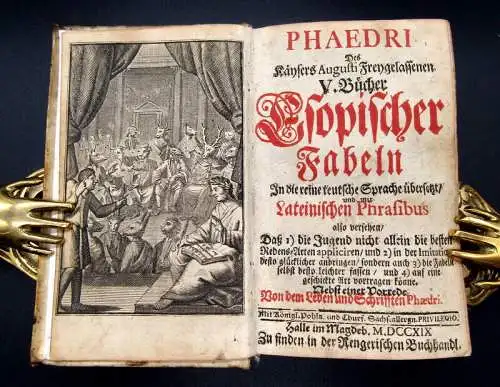 PHAEDRI
Des
Käysers Augusti Freygelassenen
V. Bücher
Esopischer
Fabeln
In die reine teutsche Sprache übersetzt/
und mit
Lateinischen Phrasibus
also versehen/
Daß 1) die Jugend nicht allein die besten
Redens-Arten appliciren/ und 2) in der Imitation
desto glücklicher anbringen/ sondern auch 3) die Fabeln
selbst desto leichter fassen/ und 4) auf eine
geschickte Art vortragen könne.
Nebst einer Vorrede
Von dem Leben und Schrifften Phædri.
Mit Königl. Pohln. und Churf. Sächs. allergn. PRIVILEGIO.
Halle im Magdeb. M.DCCXIX
Zu finden in der Rengerischen Buchhandl.